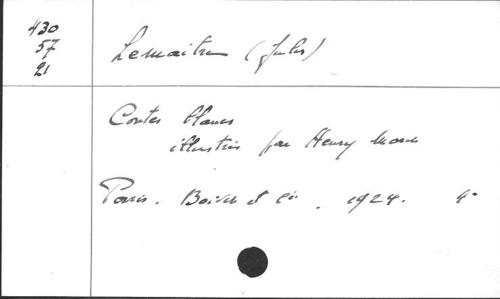 430
57
21
Lemaitre (Jules)
Contes blancs
illustrés par Henry Morin
Paris. Boivin & Cie. 1924. 4°